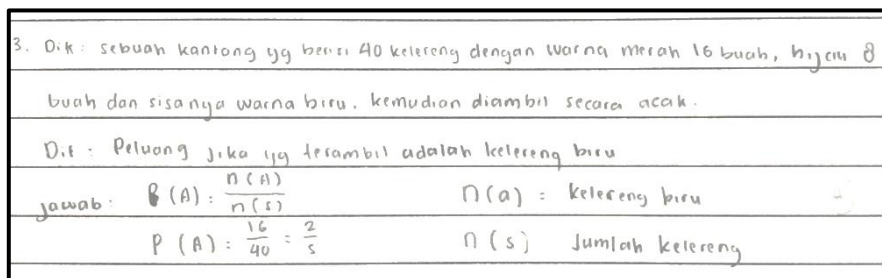 3. Dik : sebuah kantong yg berisi 40 kelereng dengan warna merah 16 buah, hijau 8
buah dan sisanya warna biru. kemudian diambil secara acak.
Dit : Peluang jika yg terambil adalah kelereng biru
Jawab : P (A) : n(A)/n(s) n(a) : kelereng biru
P (A) : 16/40 = 2/5 n(s) Jumlah kelereng